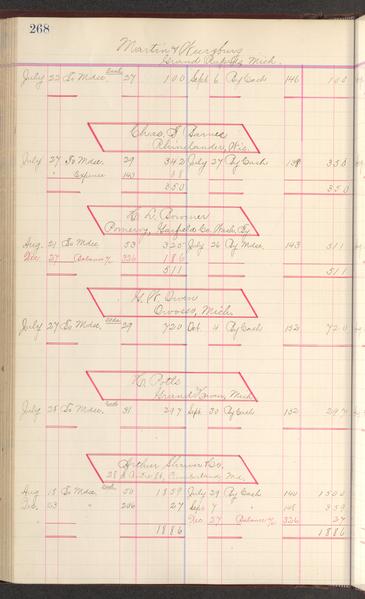 268
Martin & Wurzburg
Grand Rapids Mich.
July 22 To Mdse. 27 100 Sept 6 By Cash 146 100
Chas. S. Barnes
Rhinelander, Wis.
July 27 To Mdse. 29 342 July 27 By Cash 138 350
" Expense 140 08
350 350
Pomeroy, Garfield Co. Wash. Ty
Aug. 21 To Mdse 53 325 July 26 By Mdse. 143 511
Dec. 27 Balance 326 186
511 511
G. W. Owen
Owosso, Mich.
July 27 To Mdse. 29 720 Oct. 4 By Cash 152 720
Potts
Grand Haven, Mich
July 28 To Mdse. 31 297 Sept. 30 By Cash 152 297
Arthur & Co.
Aug 18 To Mdse 50 1859 July 29 By Cash 140 1500
Dec. 23 " 206 27 Sept 7 " 148 359
Dec 27 Balance 326 27
1886 1886